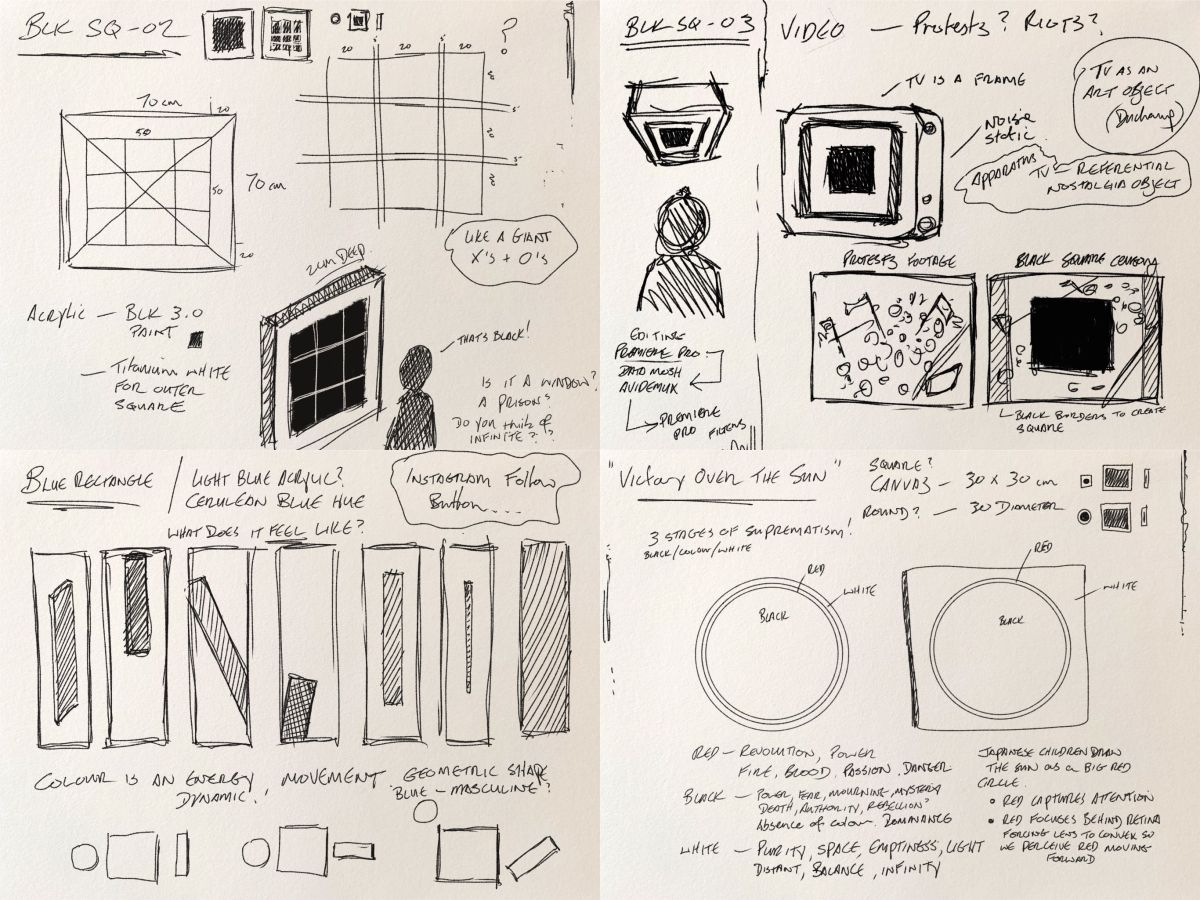 BLK SQ-02
?
20 5 20 5 20
20
5
20
5
20
70cm
20
50
50
70cm
20
LIKE A GIANT
X's + O's
2cm DEEP
ACRYLIC — BLK 3.0
PAINT
— Titanium WHITE
FOR OUTER
SQUARE
THAT'S BLACK!
IS IT A WINDOW?
A PRISON?
DO YOU think of
INFINITE? ?
BLK SQ-03
VIDEO — Protests? RIOTS?
TV IS A FRAME
TV AS AN
ART OBJECT
(Duchamp)
NOISE
STATIC
APPARATUS
TV — REFERENTIAL
NOSTALGIA OBJECT
PROTESTS FOOTAGE
BLACK SQUARE CENSOR
EDITING
PREMIERE PRO
DATA MOSH
AVIDEMUX
PREMIERE
PRO FILTERS
BLACK BORDERS TO CREATE
SQUARE
BLUE RECTANGLE
LIGHT BLUE ACRYLIC?
CERULEAN BLUE HUE
INSTAGRAM FOLLOW
BUTTON....
WHAT DOES IT FEEL LIKE?
COLOUR IS AN ENERGY, MOVEMENT
DYNAMIC!
GEOMETRIC SHAPE
BLUE — MASCULINE?
"Victory OVER THE SUN"
SQUARE?
CANVAS — 30 x 30 cm
ROUND? — 30 DIAMETER
3 STAGES OF SUPREMATISM!
BLACK/COLOUR/WHITE
RED
WHITE
BLACK
RED
WHITE
BLACK
RED — REVOLUTION, POWER
FIRE, BLOOD, PASSION, DANGER
BLACK — POWER, FEAR, MOURNING, MYSTERY
DEATH, AUTHORITY, REBELLION
Absence of colour. DOMINANCE
WHITE — PURITY, SPACE, EMPTINESS, LIGHT
DISTANT, BALANCE, INFINITY
JAPANESE CHILDREN DRAW
THE SUN as a BIG RED
CIRCLE.
• RED CAPTURES ATTENTION
• RED FOCUSES BEHIND RETINA
FORCING LENS TO CONVEX SO
WE PERCEIVE RED MOVING
FORWARD